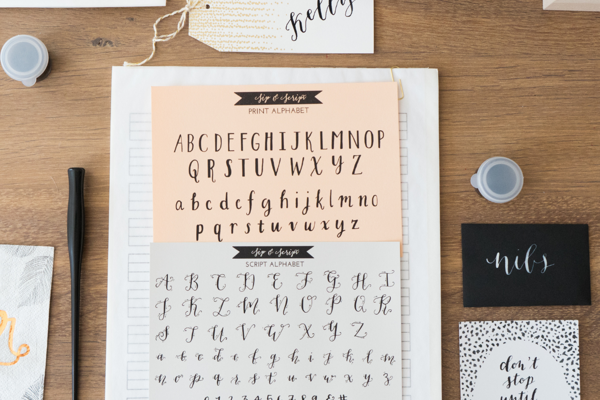 Kelly
Sip & Script
PRINT ALPHABET
ABCDEFGHIJKLMNOP
QRSTUVWXYZ
abcdefghijklmno
pqrstuvwxyz
Sip & Script
SCRIPT ALPHABET
A B C D E F G H I
J K L M N O P Q R
S T U V W X Y Z
a b c d e f g h i j k l m
n o p q r s t u v w x y z
nibs
don't
stop
until